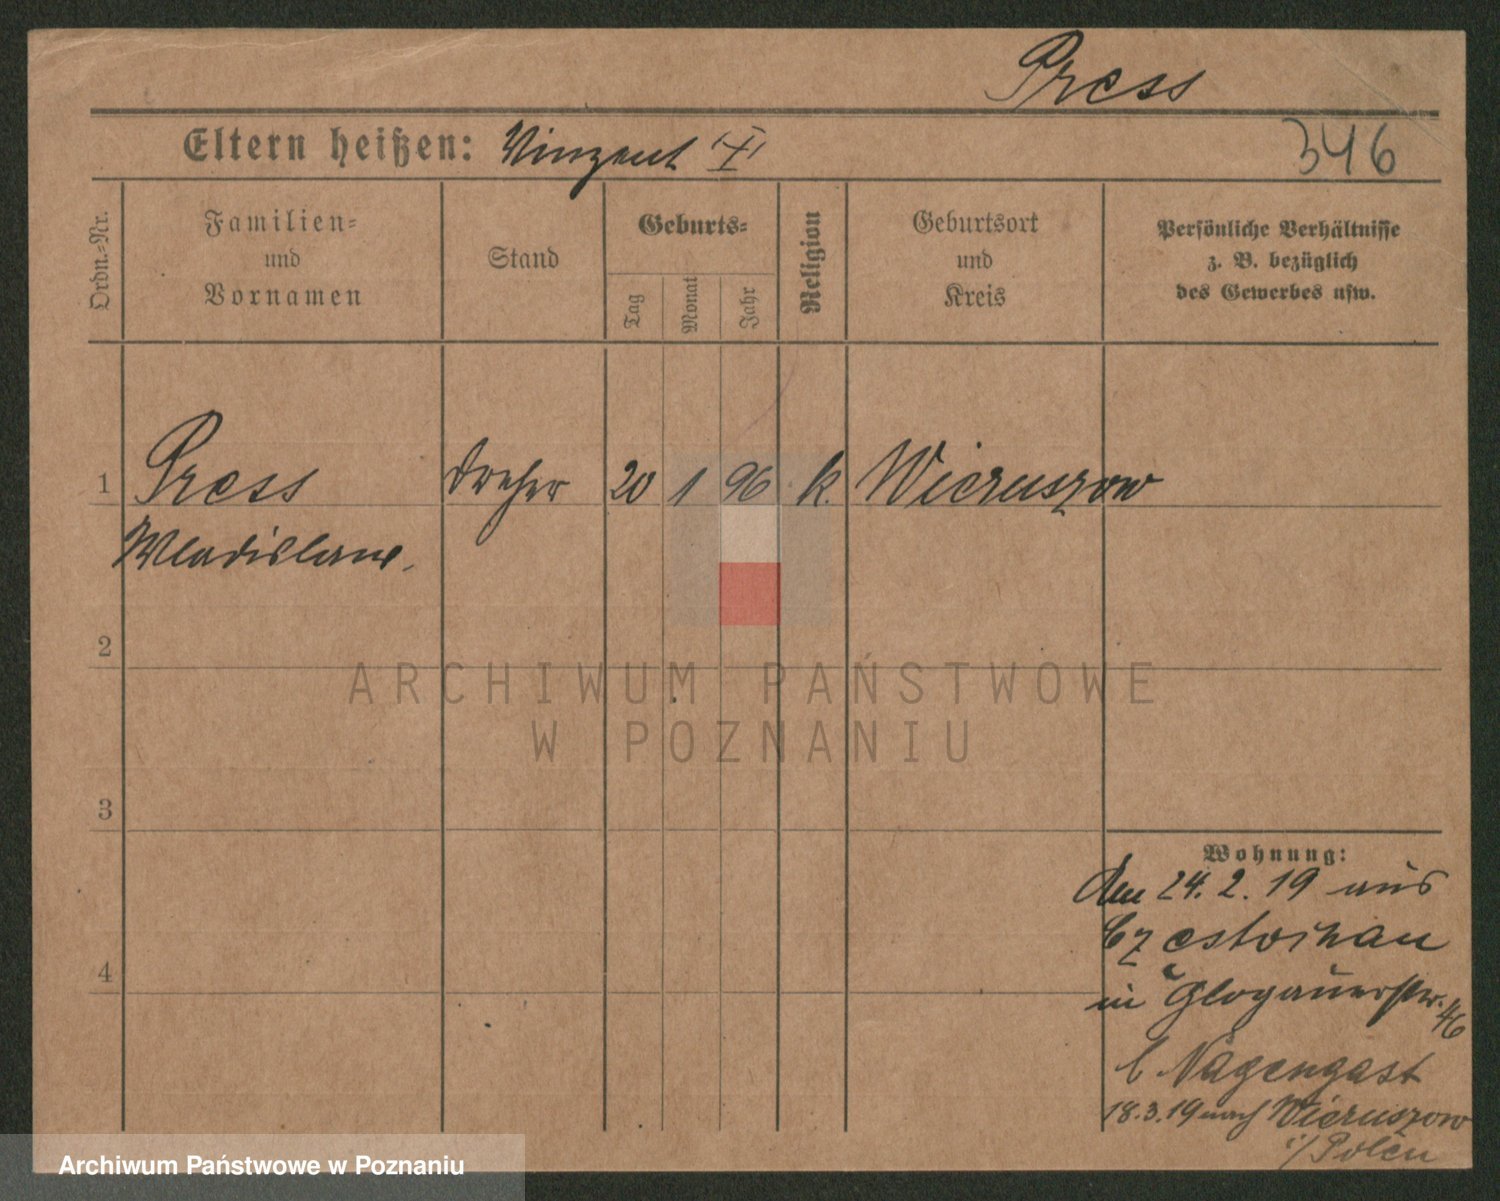 Press
Eltern heißen: Vinzent
346
Ordn.-Nr.
Familien-
und
Vornamen
Stand
Geburts-
Tag
Monat
Jahr
Religion
Geburtsort
und
Kreis
Persönliche Verhältnisse
z. B. bezüglich
des Gewerbes usw.
1 Press Dreher 20 1 96 k. Wieruszow
Wladislaus.
2
3
4
Wohnung:
den 24. 2. 19 aus
Czestochau
in Glogauerstr. 46
b Nagengast
18.3.19 nach Wieruszow
i/Polen
ARCHIWUM PAŃSTWOWE
W POZNANIU
Archiwum Państwowe w Poznaniu